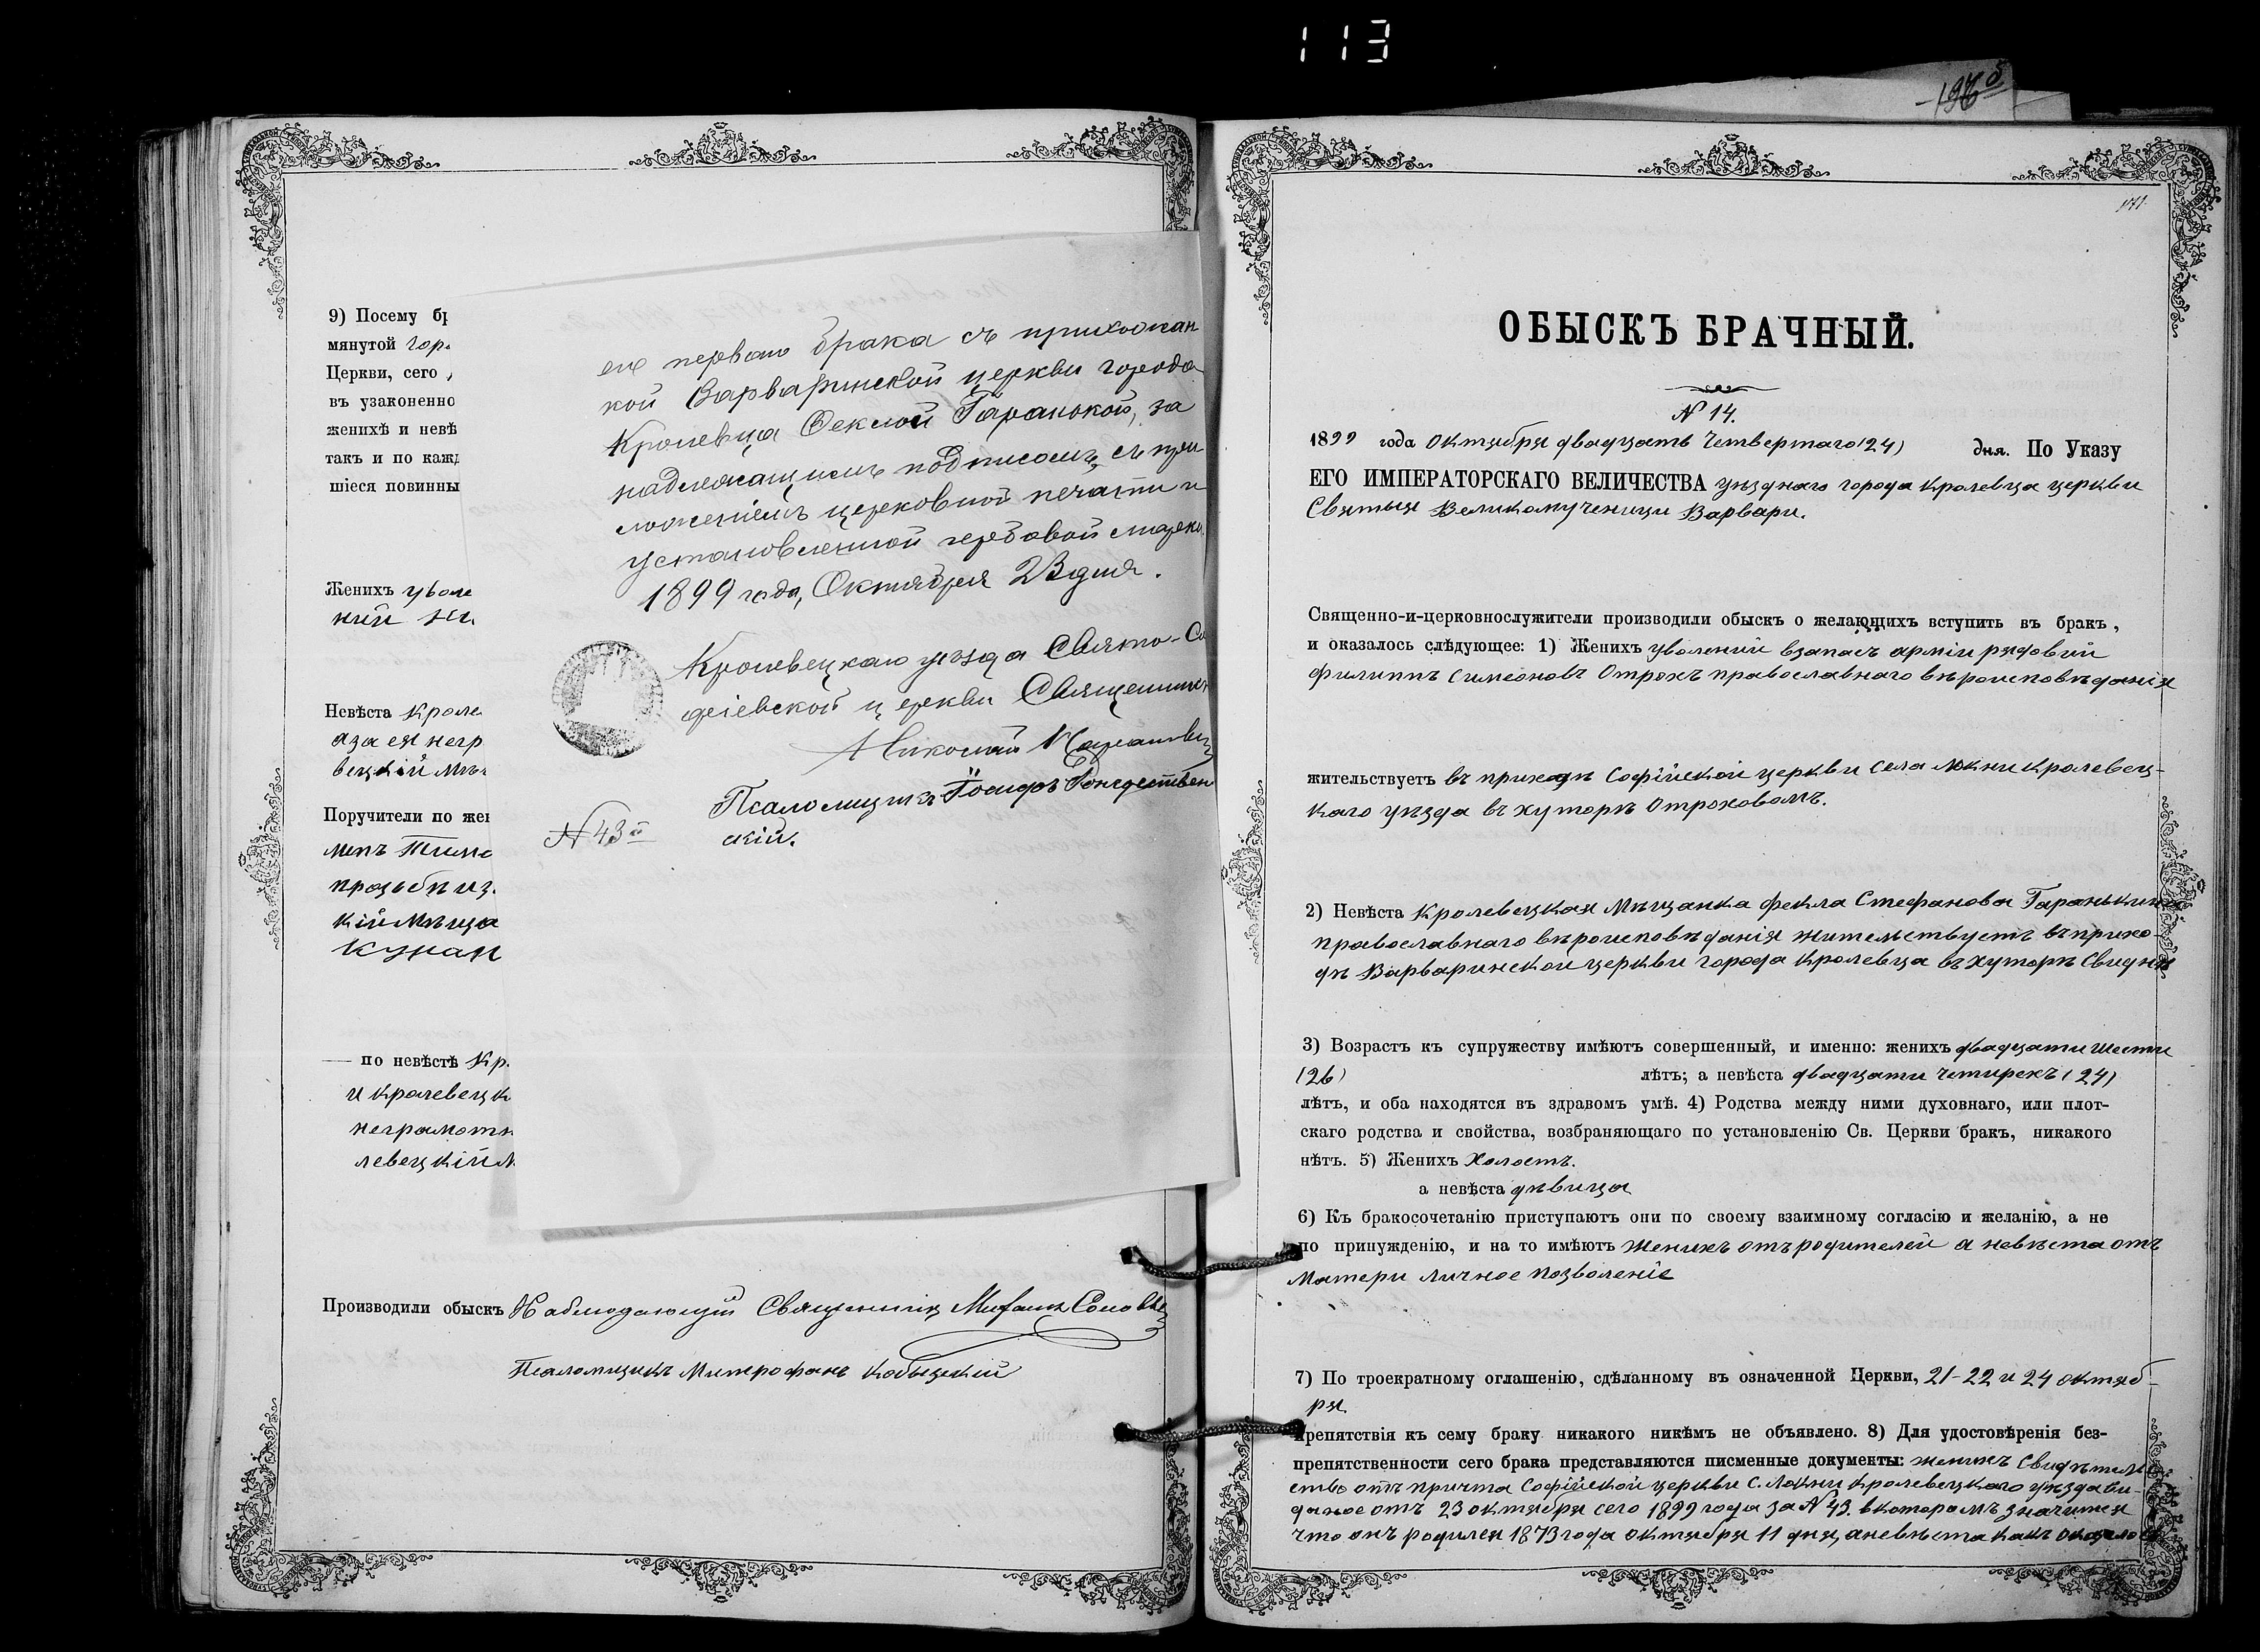 113
196
171.
9) Посему бр
мянутой гор.
Церкви, сего
въ узаконенно
женихѣ и невѣ
такъ и по кажд
шіеся повинны
Женихъ уволе
Невѣста Кроле
аза ея негр
вецкій мѣ
Поручители по жен
менъ Тимо
прозьбѣ из.
кій мѣща
Кунан
— по невѣстѣ Кр.
и Кролевецк
неграмотн
левецкій М
его перваго брака съ прихожан
кой Варваринской церкви города
Кролевца Феклой Гаранькой, за
надлежащимъ подписомъ, съ при
ложеніемъ церковной печати и
установленной гербовой марки.
1899 года, Октября 23 дня.
Кролевецкаго уѣзда Свято-Со
фіевской церкви Священник
Николай
Псаломщикъ Іосифъ Рождествен
скій.
№ 43й
Производили обыскъ Наблюдающій Священникъ Михаилъ
Псаломщикъ Митрофанъ Кобыцкій
ОБЫСКЪ БРАЧНЫЙ.
№ 14.
1899 года Октября двадцать Четвертаго (24) дня. По Указу
ЕГО ИМПЕРАТОРСКАГО ВЕЛИЧЕСТВА уѣзднаго города Кролевца церкви
Святыя Великомученицы Варвари.
Священно-и-церковнослужители производили обыскъ о желающихъ вступить въ бракъ,
и оказалось слѣдующее: 1) Женихъ уволений взапасъ арміи рядовий
филиппъ Симеоновъ Отрохъ православнаго вѣроисповѣданія
жительствуетъ въ приходѣ Софійской церкви села Локни Кролевец-
каго уѣзда въ хуторѣ Отроховомъ.
2) Невѣста Кролевецкая Мѣщанка фекла Стефанова Гаранькина
православнаго вѣроисповѣданія жительствуетъ въ прихо-
дѣ Варваринской церкви города Кролевца въ хуторѣ Свидня
3) Возрастъ къ супружеству имѣютъ совершенный, и именно: женихъ двадцати шести
(26) лѣтъ; а невѣста двадцати четирехъ (24)
лѣтъ, и оба находятся въ здравомъ умѣ. 4) Родства между ними духовнаго, или плот-
скаго родства и свойства, возбраняющаго по установленію Св. Церкви бракъ, никакого
нѣтъ. 5) Женихъ Холостъ.
а невѣста дѣвица
6) Къ бракосочетанію приступаютъ они по своему взаимному согласію и желанію, а не
по принужденію, и на то имѣютъ Женихъ отъ родителей а невѣста отъ
Матери личное позволеніе
7) По троекратному оглашенію, сдѣланному въ означенной Церкви, 21-22 и 24 октяб-
ря.
препятствія къ сему браку никакого никѣмъ не объявлено. 8) Для удостовѣренія без-
препятственности сего брака представляются писменные документы: женихъ Свидѣтель
ство отъ причта Софійской церкви С. Локни Кролевецкаго уѣзда ви-
даное отъ 23 октября сего 1899 года за № 43. вкоторомъ значится
что онъ родился 1873 года октября 11 дня, а невѣста какъ оказалось